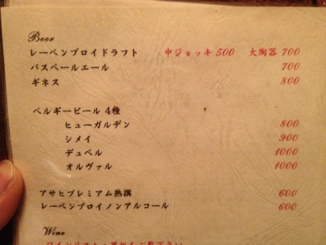 Beer
レーベンブロイドラフト 中ジョッキ 500 大陶器 700
バスペールエール 700
ギネス 800
ベルギービール 4種
ヒューガルデン 800
シメイ 900
デュベル 1000
オルヴァル 1000
アサヒプレミアム熟撰 600
レーベンブロイノンアルコール 600
Wine